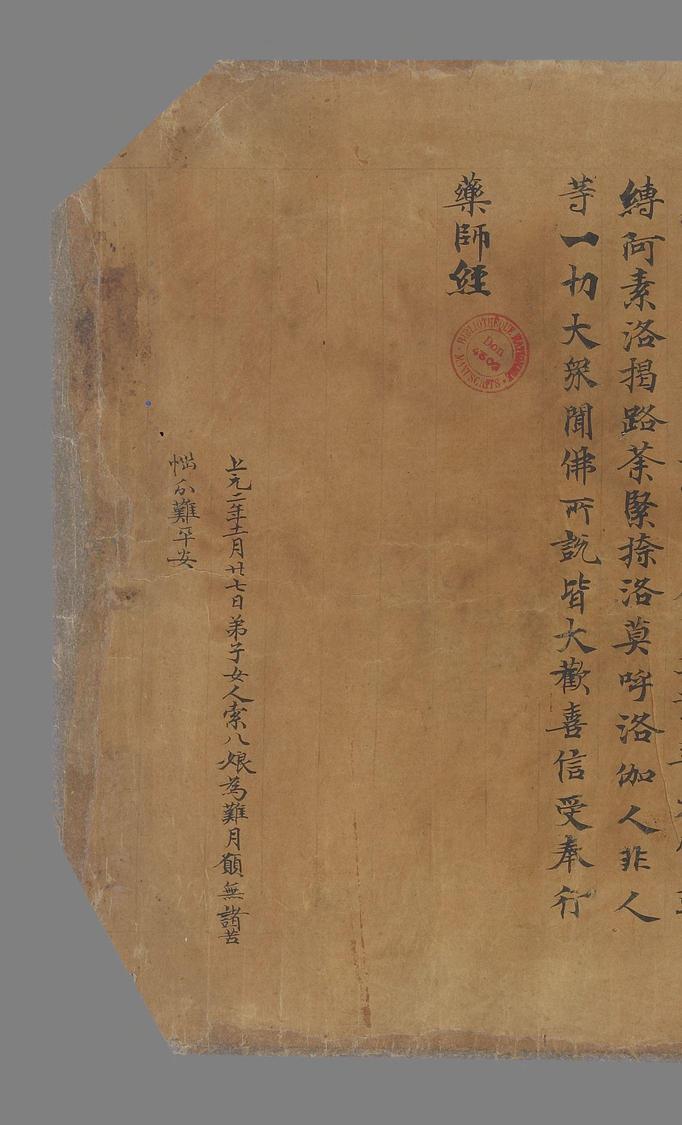 縛阿素洛揭路荼緊捺洛莫呼洛伽人非人
等一切大眾聞佛所說皆大歡喜信受奉行
藥師經
BIBLIOTHÈQUE NATIONALE
MANUSCRITS
Don
4502
上元二年十一月廿七日弟子女人索八娘為難月願無諸苦
惱分難平安